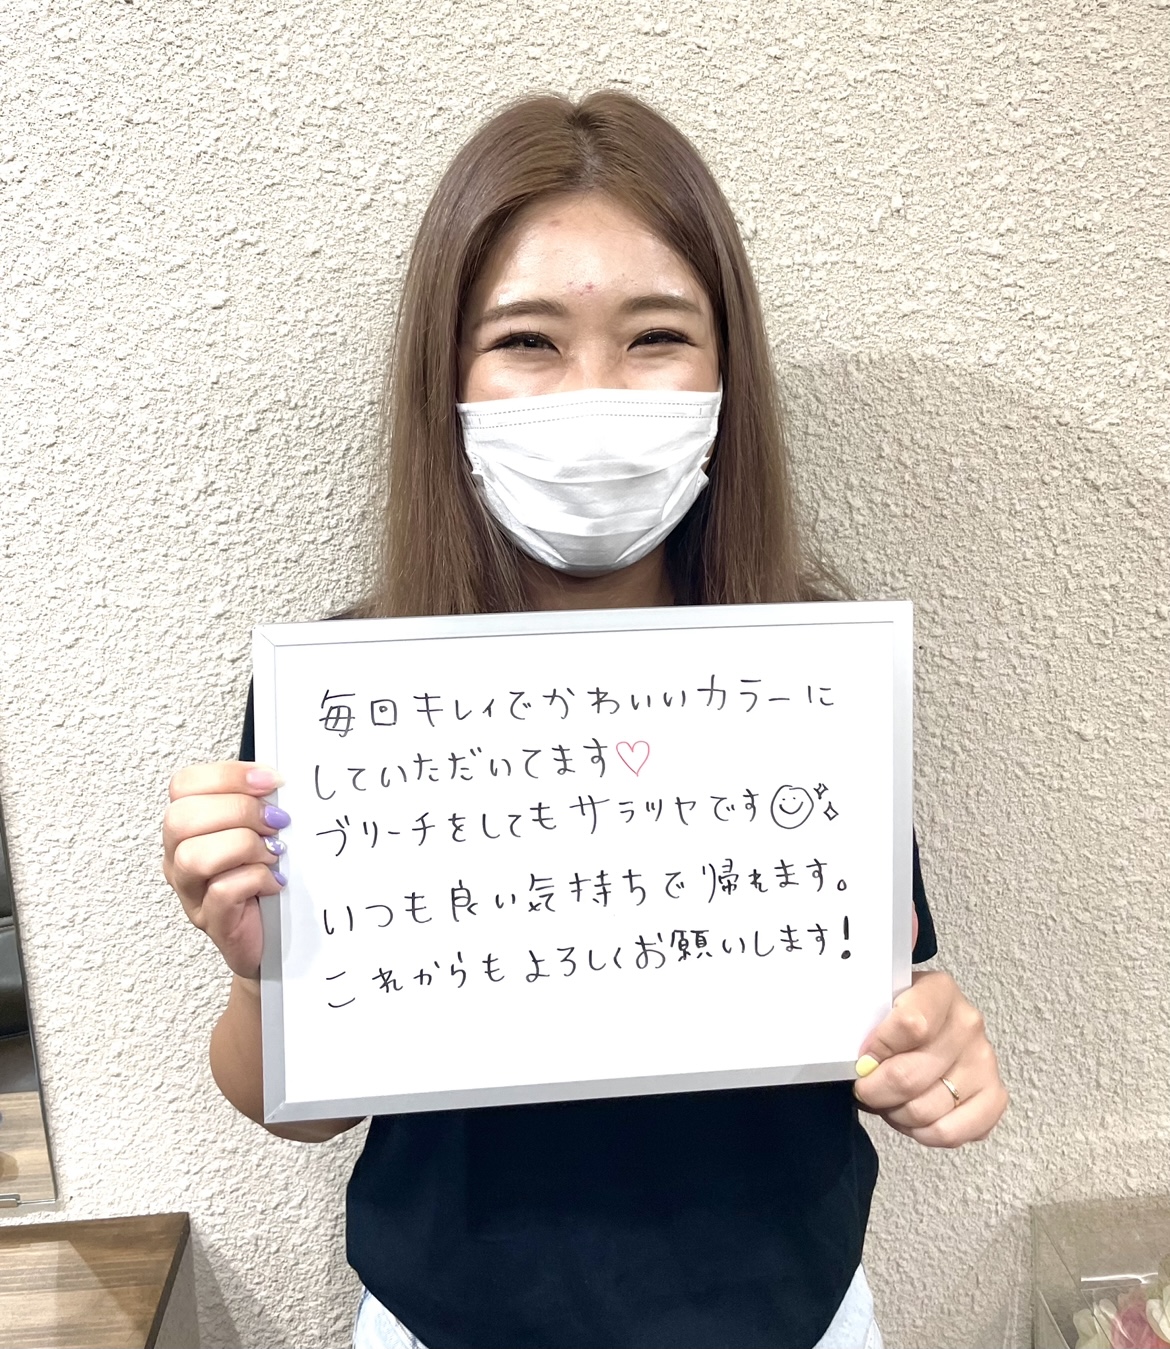 毎回キレイでかわいいカラーに
していただいてます♡
ブリーチをしてもサラツヤです
いつも良い気持ちで帰れます。
これからもよろしくお願いします!